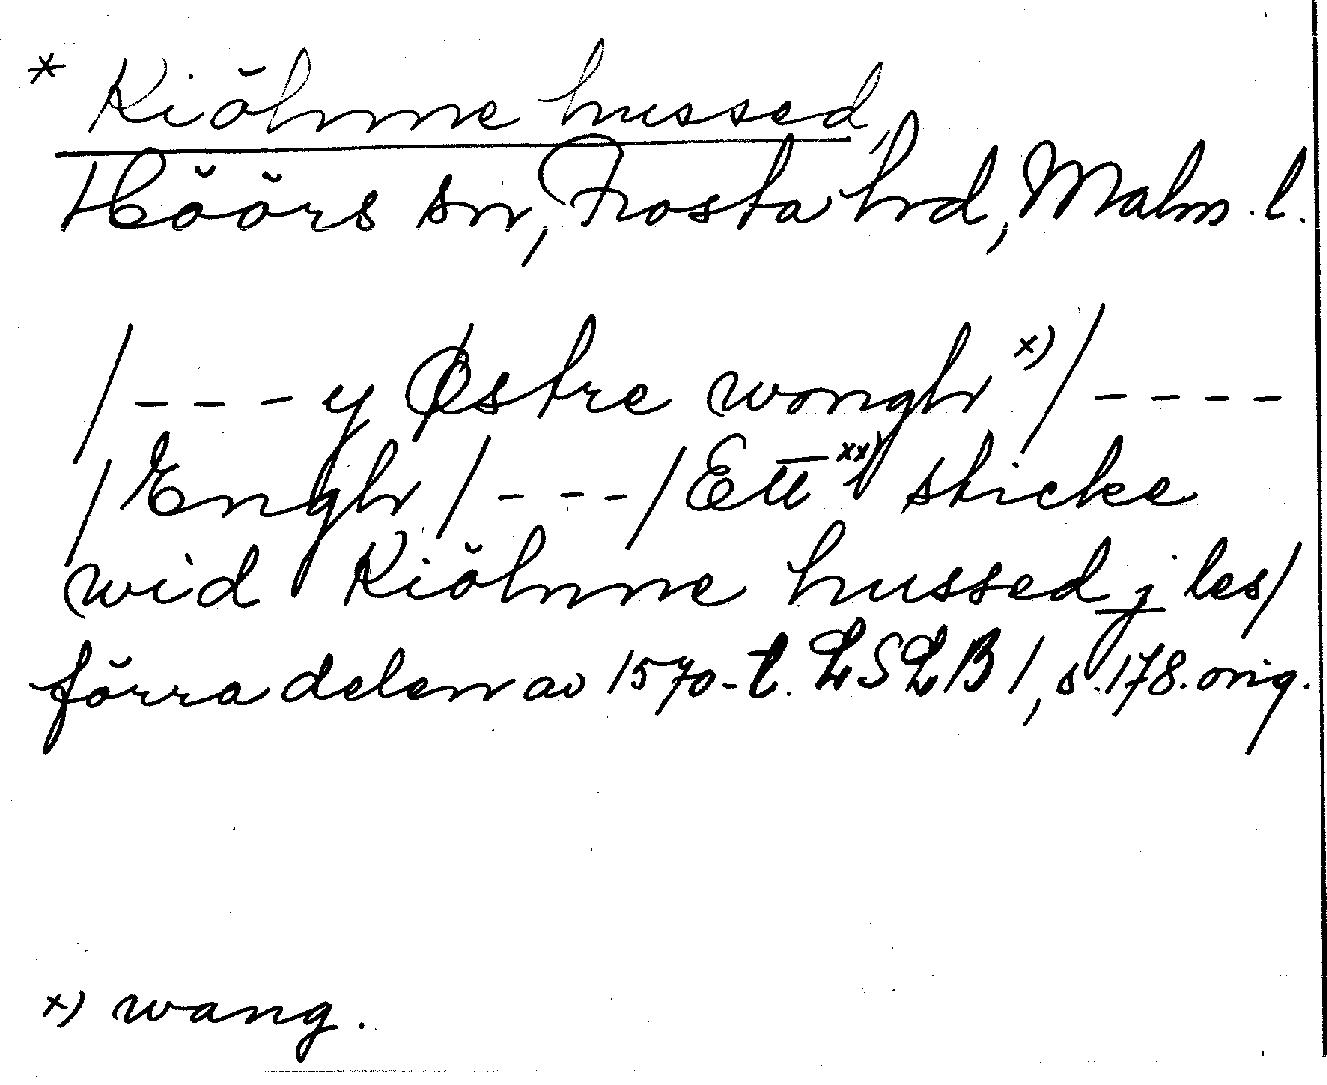 * Kiöhnne hussed,
Höörs sn, Frosta hrd, Malm. l.
/---y Østre wongh x)/----
/Engh/---/Ett xx) sticke
wid Kiöhnne hussed j les/
förra delen av 1570-t. LSLB 1, s. 178. orig.
x) wang.